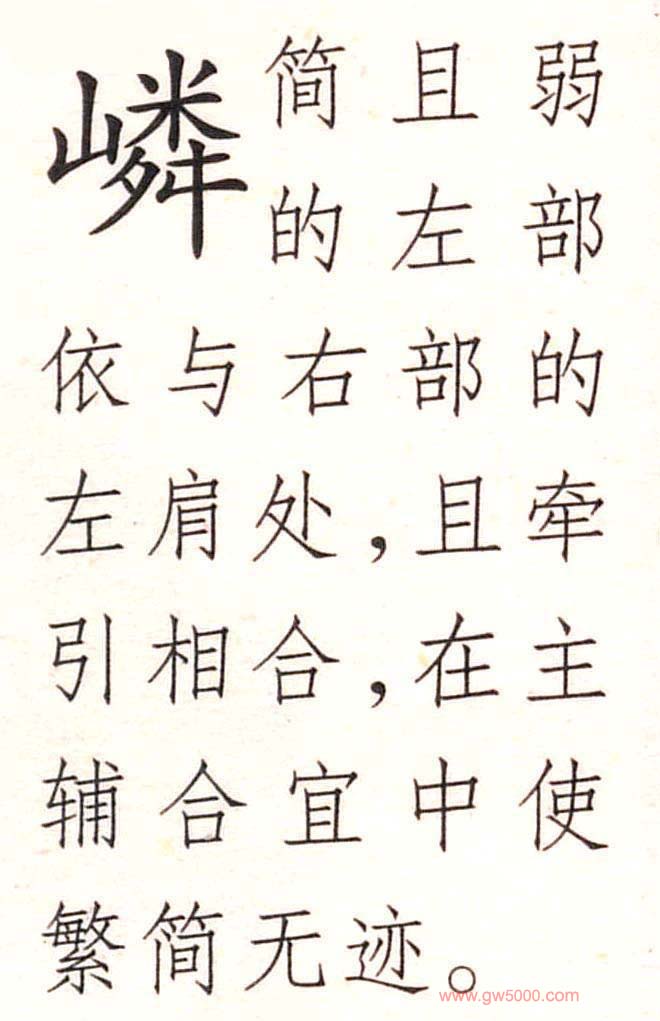 嶙
简且弱
的左部
依与右部的
左肩处，且牵
引相合，在主
辅合宜中使
繁简无迹。
www.gw5000.com